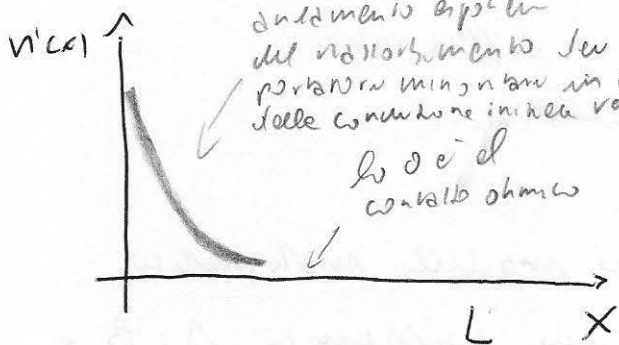 andamento
del riassorbimento dei
portatori minoritari in
della condizione iniziale
n'(x)
lo 0 è il
contatto ohmico
L X